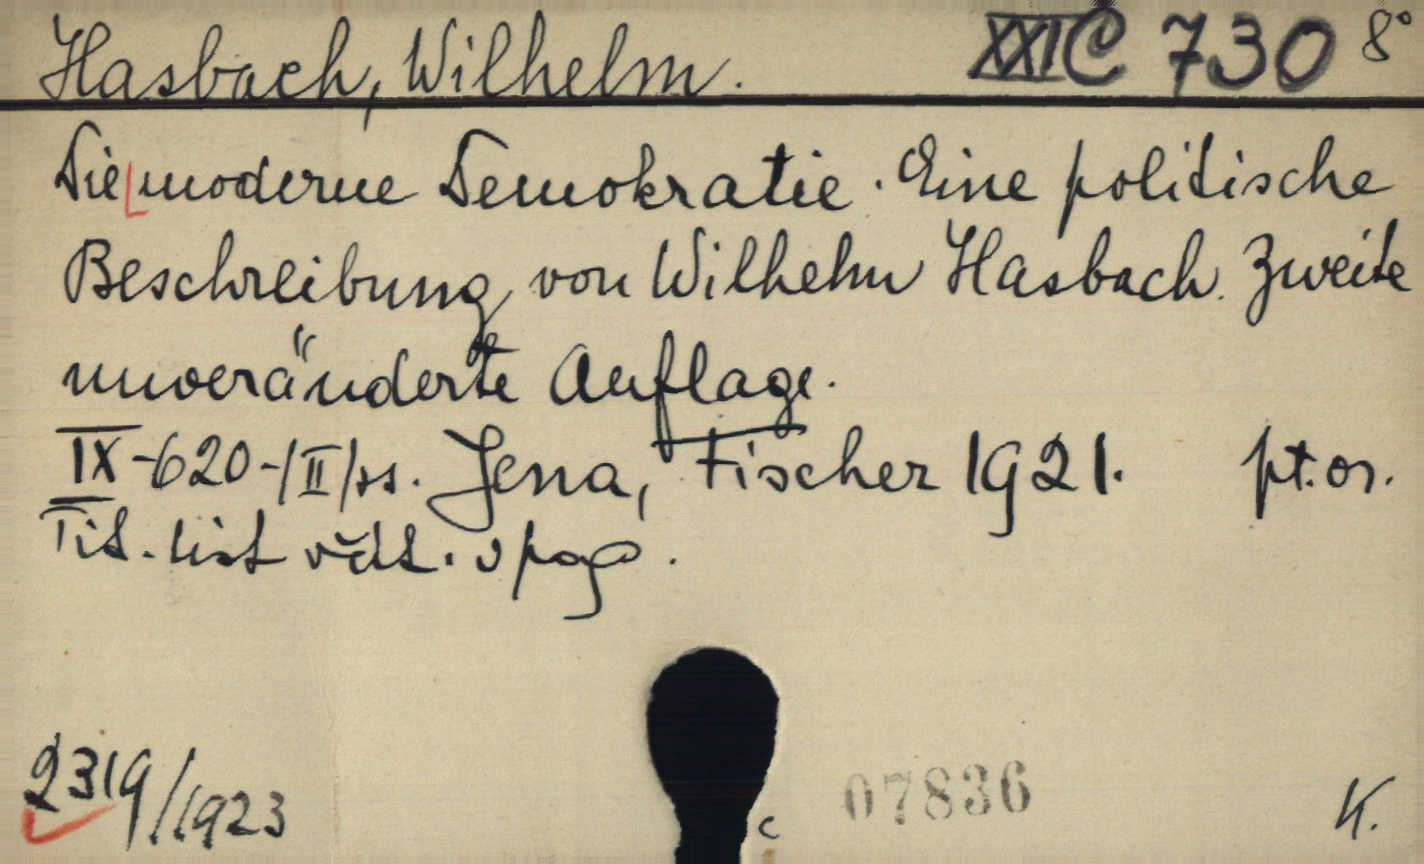 Hasbach, Wilhelm. XXIC 730 8°
Die moderne Demokratie. Eine politische
Beschreibung von Wilhelm Hasbach. Zweite
unveränderte Auflage.
IX-620-/II/ss. Jena, Fischer 1921. pt. or.
Tit. list včit. v pag.
2319/1923
07836
c
K.